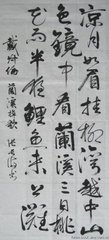 涼月如眉挂柳灣越中山
色鏡中看蘭溪三日桃
花雨半夜鯉魚來上灘
戴叔倫蘭溪棹歌